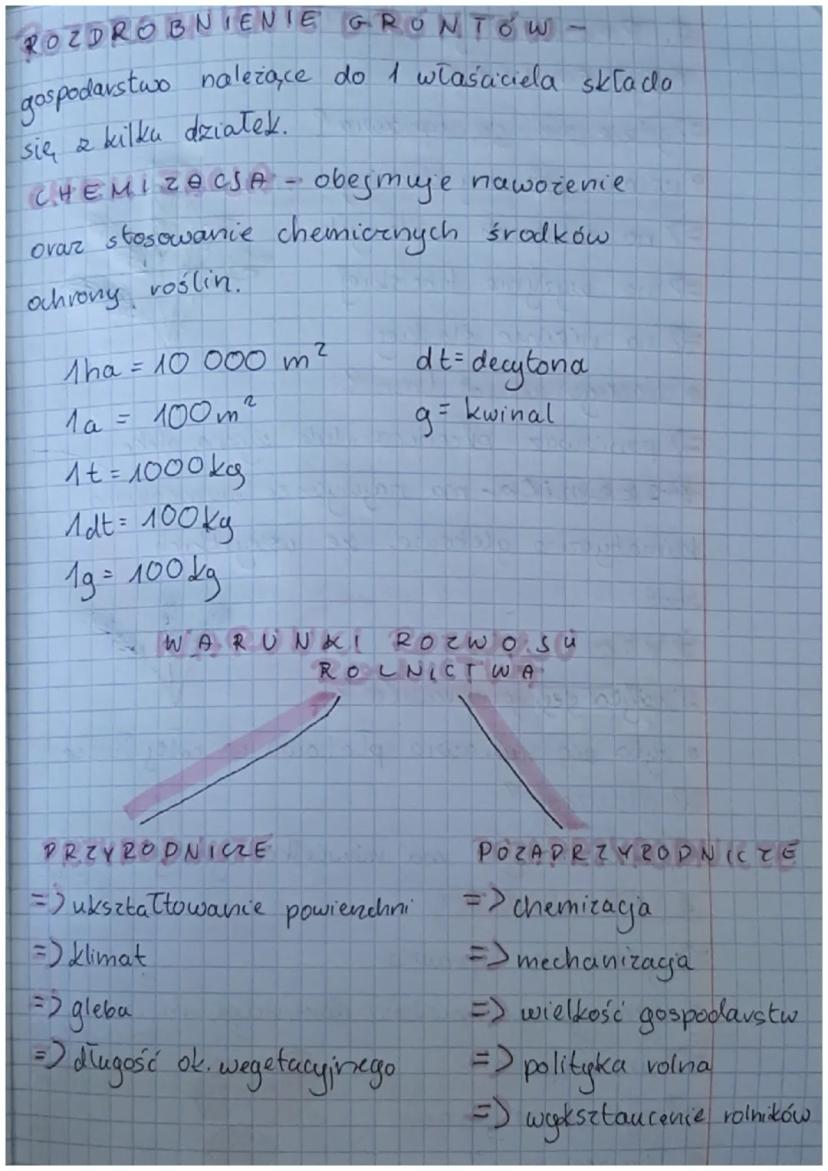 ROZDROBNIENIE GRUNTÓW -
gospodarstwo należące do 1 właściciela składa
się z kilku działek.
CHEMIZACJA - obejmuje nawożenie
oraz stosowanie chemicznych środków
ochrony roślin.
1ha = 10 000 m² dt = decytona
1a = 100m² q = kwinal
1t = 1000kg
1dt = 100kg
1q = 100kg
WARUNKI ROZWOJU
ROLNICTWA
PRZYRODNICZE POZAPRZYRODNICZE
=> ukształtowanie powierzchni => chemizacja
=> klimat => mechanizacja
=> gleba => wielkość gospodarstw
=> długość ok. wegetacyjnego => polityka rolna
=> wykształcenie rolników